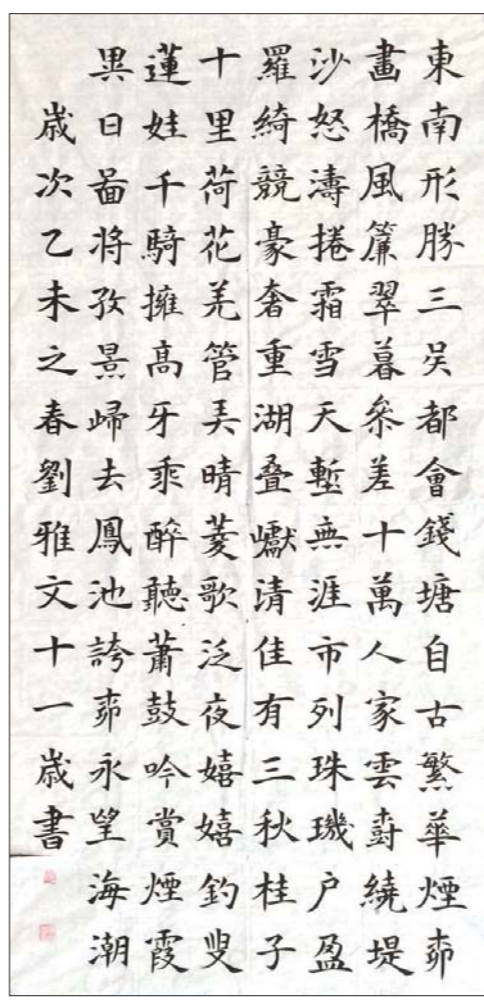 東南形勝三吳都會錢塘自古繁華煙柳
畫橋風簾翠暮叅差十萬人家雲樹繞堤
沙怒濤捲霜雪天塹無涯市列珠璣户盈
羅綺競豪奢重湖叠巘清佳有三秋桂子
十里荷花羌管弄晴菱歌泛夜嬉嬉釣叟
蓮娃千騎擁高牙乘醉聽蕭鼓吟賞煙霞
異日圖將好景歸去鳳池誇柳永望海潮
歲次乙未之春劉雅文十一歲書